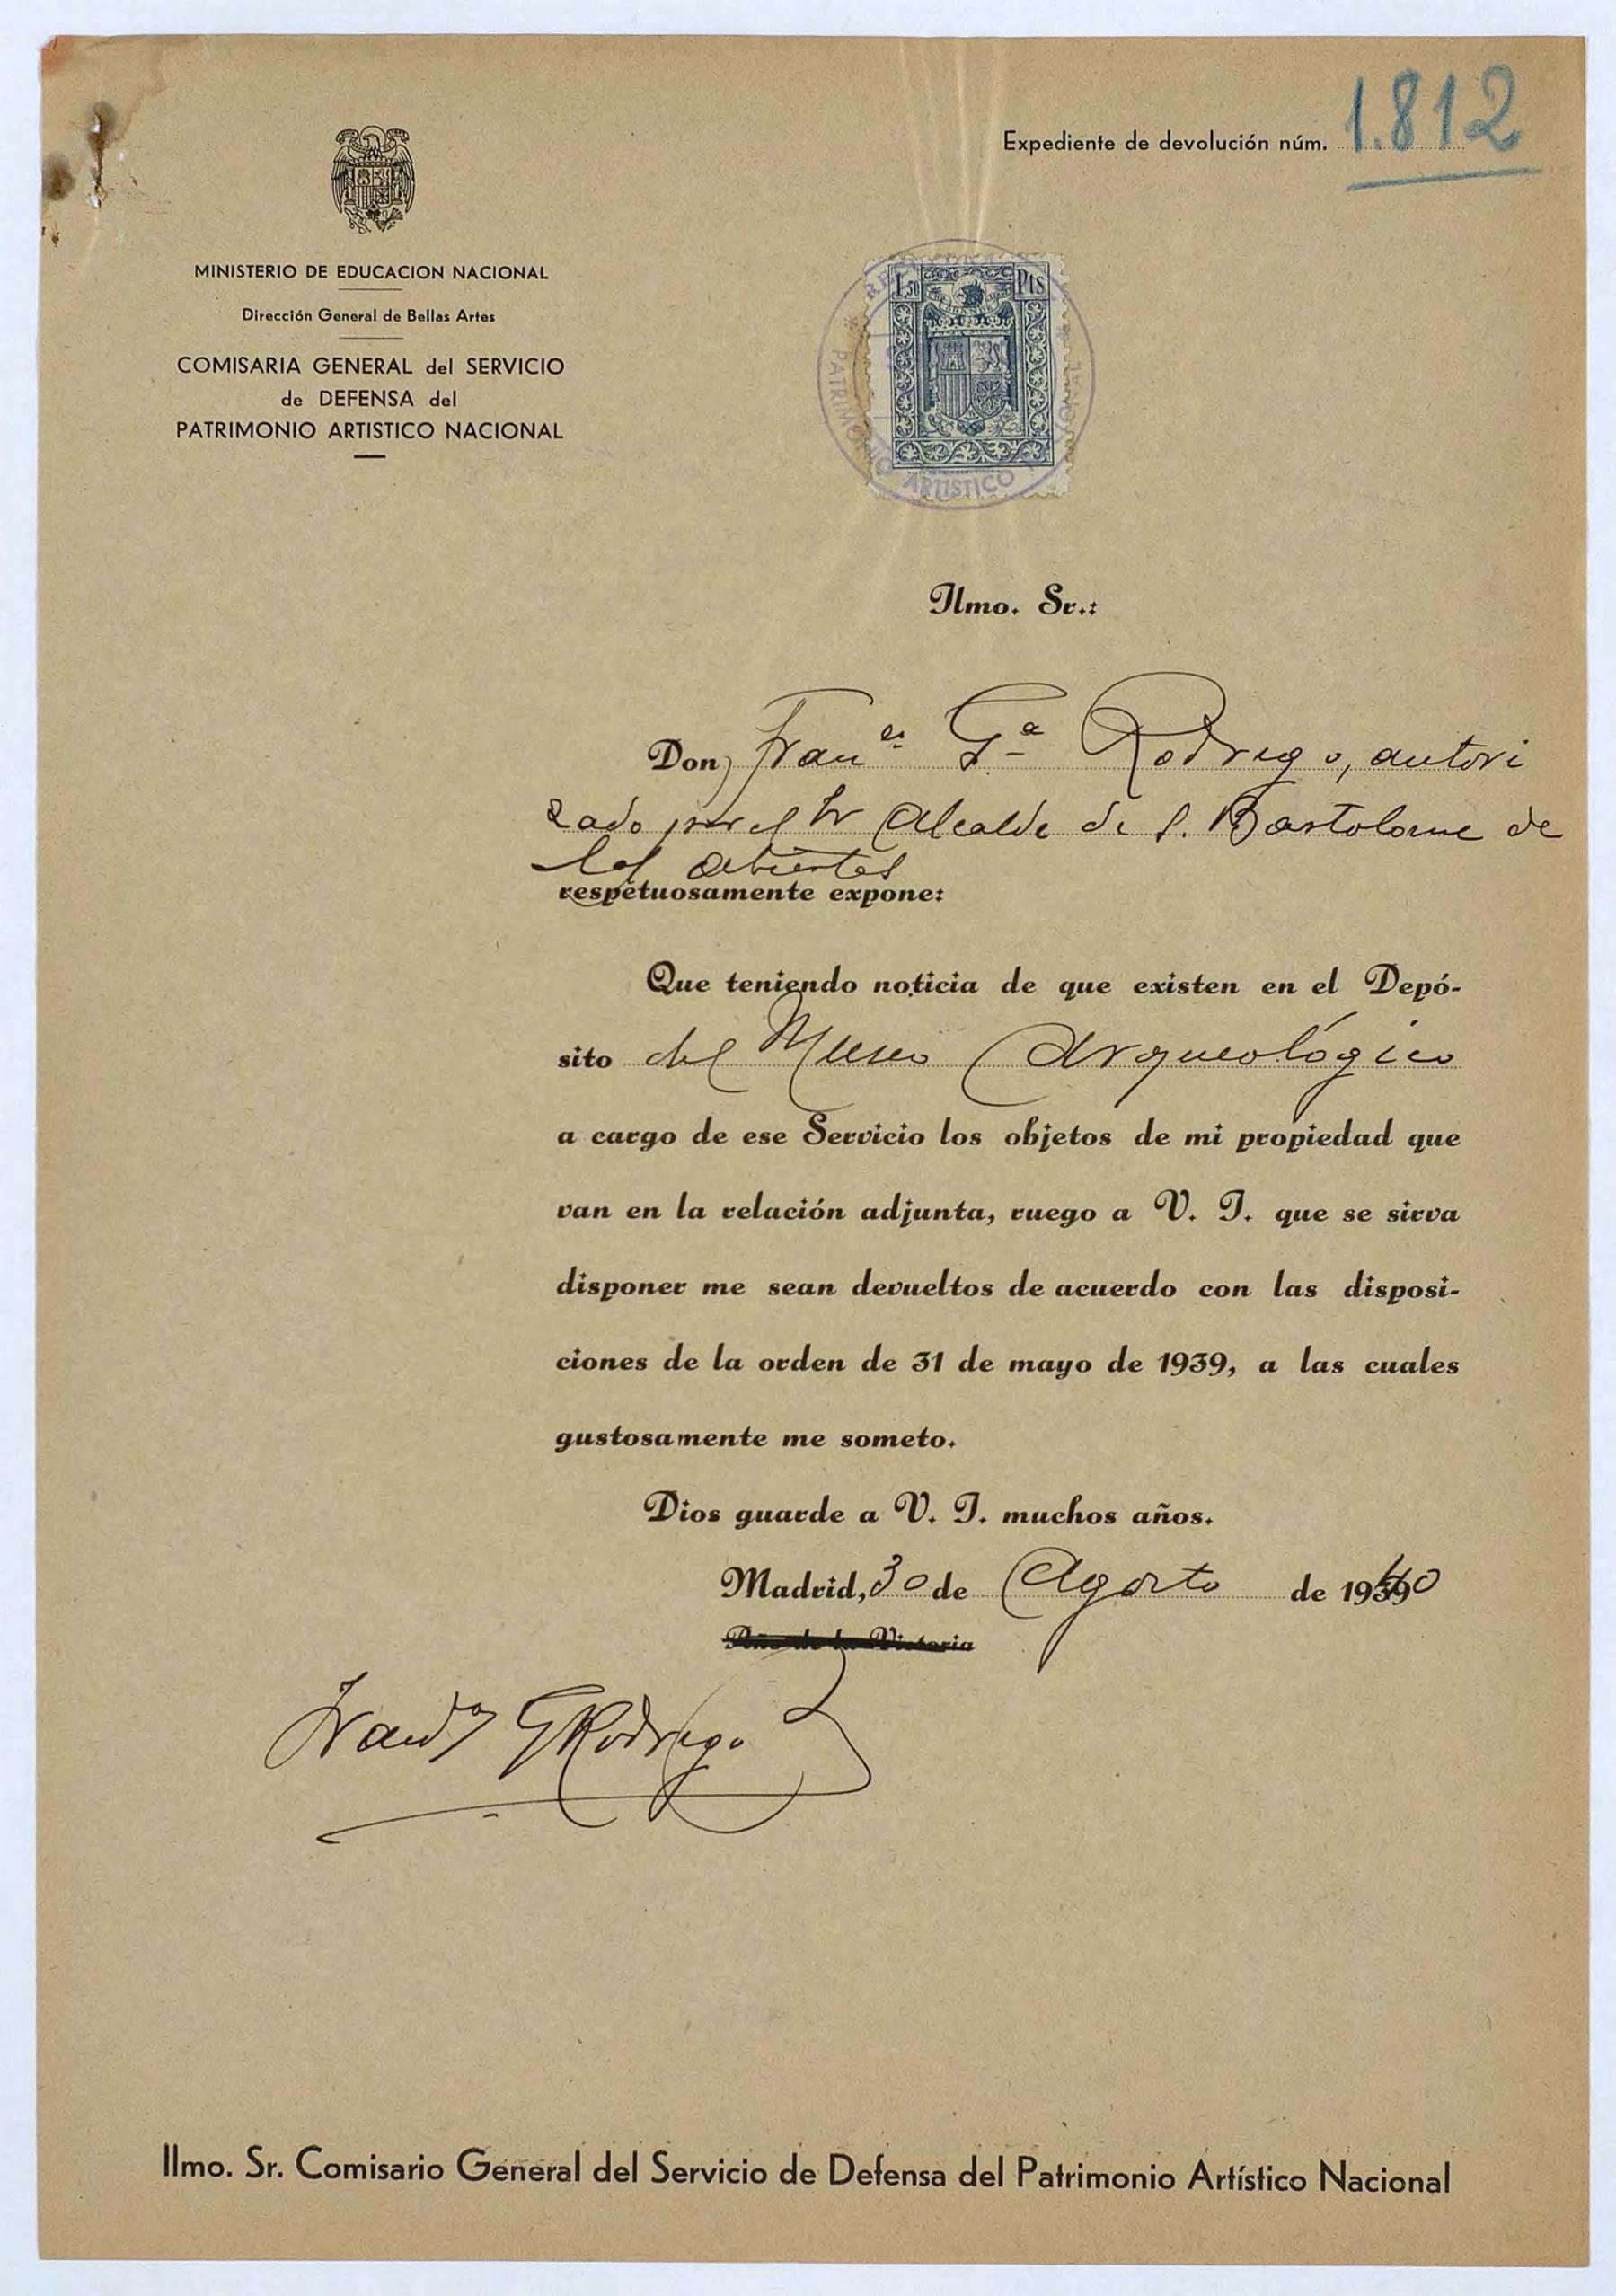 Expediente de devolución núm. 1.812
MINISTERIO DE EDUCACION NACIONAL
Dirección General de Bellas Artes
COMISARIA GENERAL del SERVICIO
de DEFENSA del
PATRIMONIO ARTISTICO NACIONAL
1,50 Pts
PATRIMONIO ARTISTICO
Ilmo. Sr.:
Don, Fran^co G^a Rodrigo, autori
zado por el Sr Alcalde de S. Bartolome de
las Abiertas
respetuosamente expone:
Que teniendo noticia de que existen en el Depó-
sito del Museo Arqueológico
a cargo de ese Servicio los objetos de mi propiedad que
van en la relación adjunta, ruego a V. I. que se sirva
disponer me sean devueltos de acuerdo con las disposi-
ciones de la orden de 31 de mayo de 1939, a las cuales
gustosamente me someto.
Dios guarde a V. I. muchos años.
Madrid, 30 de Agosto de 1940
Año de la Victoria
G Rodrigo
Ilmo. Sr. Comisario General del Servicio de Defensa del Patrimonio Artístico Nacional